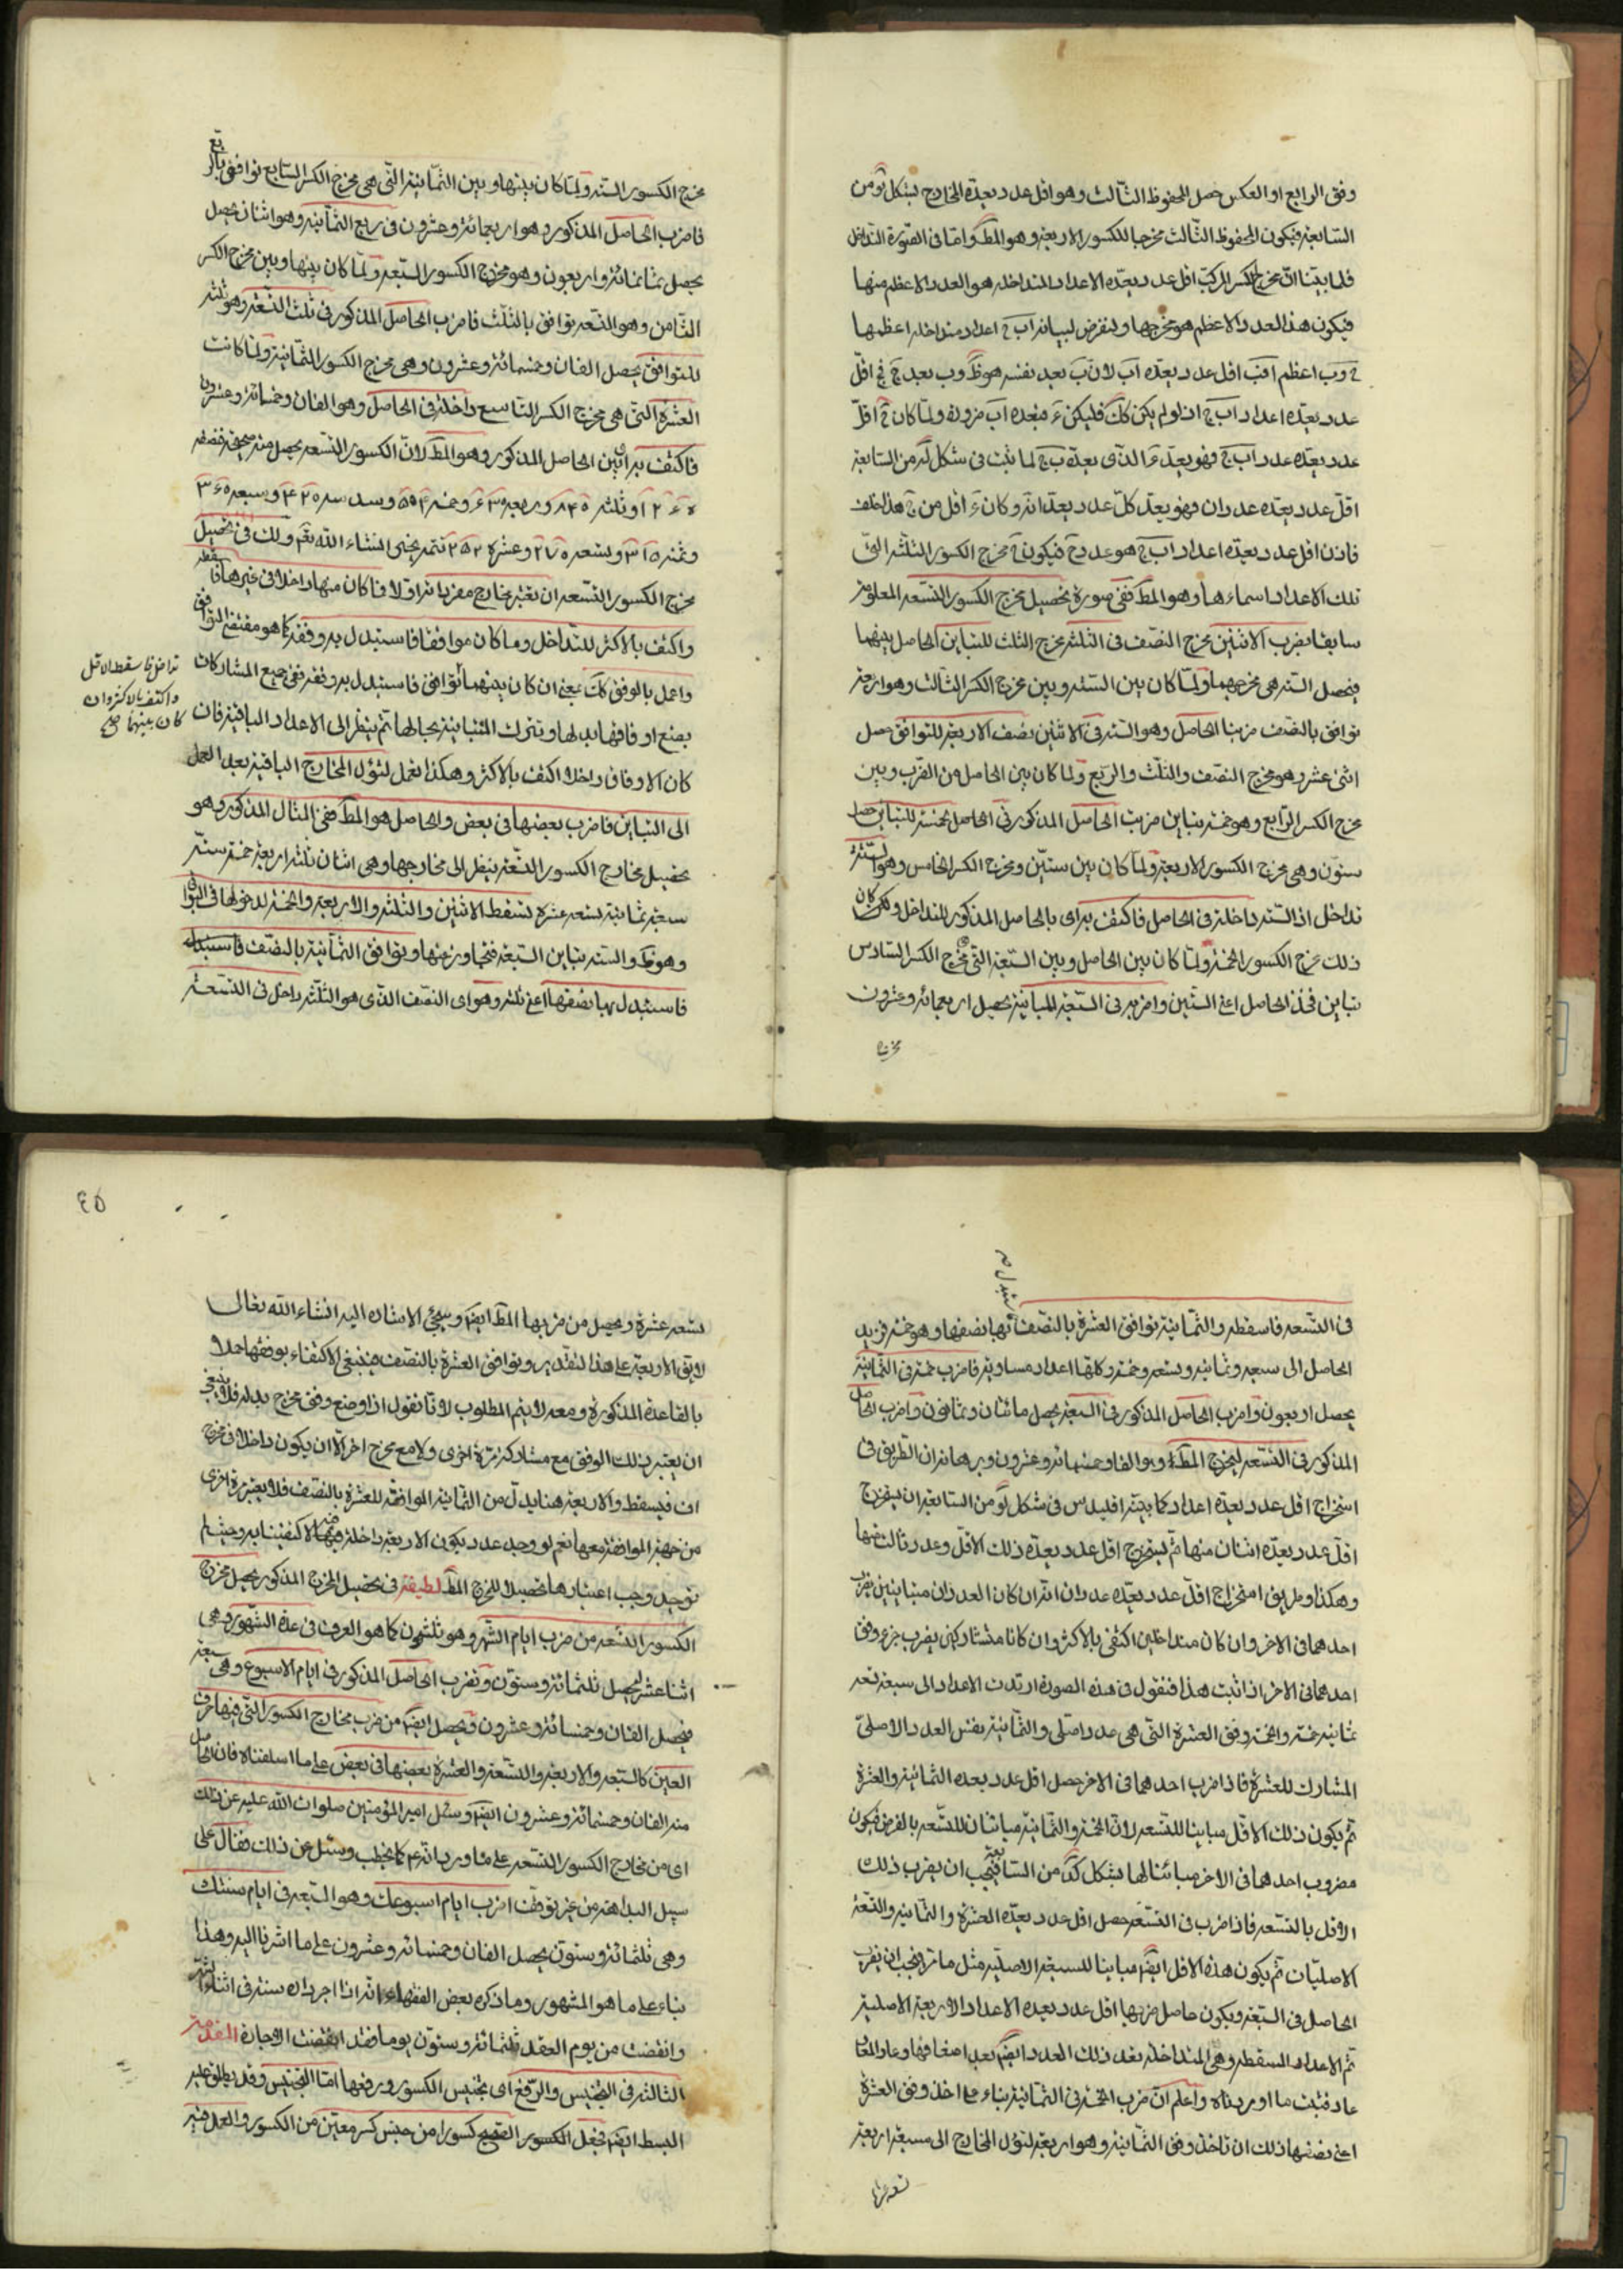 وفق الرابع او العكس حصل المحفوظ الثالث وهو اقل عدد يعده المخارج بشكل لو من
السابعة فيكون المحفوظ الثالث مخرجا للكسور الاربعة وهو المط واما فى الصورة التداخل
فلما بينا ان مخرج الكسر المركب اقل عدد يعده الاعداد المتداخلة هو العدد الاعظم منها
فيكون هذا العدد الاعظم هو مخرجها ولنفرض لبيانه اب ج اعداد متداخلة اعظمها
ج وب اعظم من اقل عدد يعده اب لان ب يعد نفسه هو ظ وب يعد ج فج اقل
عدد يعده اعداد اب ج اذ لو لم يكن كك فليكن ء فيعده اب ولما كان اقل
عدد يعده عدد اب ج فهو يعد ء الذى يعده ب ج لما ثبت فى شكل من السابعة
اقل عدد يعده عددان فهو يعد كل عدد يعدانه وكان ء اقل من ج هذا خلف
فاذن اقل عدد يعده اعداد اب ج هو عدد ج فيكون ج مخرج الكسور الثلثة التى
تلك الاعداد اسماءها وهو المط ففى صورة تحصيل مخرج الكسور التسعة المعلومة
سابقا يضرب الاثنين مخرج النصف فى الثلثة مخرج الثلث للتباين الحاصل بينهما
فيحصل الستة هى مخرجهما ولما كان بين الستة وبين مخرج الكسر الثالث وهو اربعة
توافق بالنصف ضربنا الحاصل وهو الستة فى الاثنين نصف الاربعة للتوافق حصل
اثنى عشر وهو مخرج النصف والثلث والربع ولما كان بين الحاصل من الضرب وبين
مخرج الكسر الرابع وهو خمسة تباين ضربت الحاصل المذكور فى الحاصل بخمسة للتباين حصل
ستون وهى مخرج الكسور الاربعة ولما كان بين ستين ومخرج الكسر الخامس وهو الستة
تداخل اذ الستة داخلة فى الحاصل فاكتف به اى بالحاصل المذكور للتداخل
ذلك مخرج الكسور الخمسة ولما كان بين الحاصل وبين السبعة التى مخرج الكسر السادس
تباين فخذ الحاصل اعنى الستين واضربه فى السبعة للمباينة يحصل اربعمائة وعشرون
مخرج الكسور الستة ولما كان بينها وبين الثمانية التى هى مخرج الكسر السابع توافق بالربع
فاضرب الحاصل المذكور وهو اربعمائة وعشرون فى ربع الثمانية وهو اثنان يحصل
يحصل ثمانمائة واربعون وهو مخرج الكسور السبعة ولما كان بينها وبين مخرج الكسر
الثامن وهو التسعة توافق بالثلث فاضرب الحاصل المذكور فى ثلث التسعة وهو ثلثة
للتوافق يحصل الفان وخمسمائة وعشرون وهى مخرج الكسور الثمانية ولما كانت
العشرة التى هى مخرج الكسر التاسع داخلة فى الحاصل وهو الفان وخمسمائة وعشرون
فاكتف به اى بين الحاصل المذكور وهو المط لان الكسور التسعة يحصل منه صحيحة فنصفه
١٢٦٠ وثلثه ٨۴٥ وربعه ٦٣٥ وخمسه ٥٥۴ وسدسه ۴٢٥ وسبعه ٣٦٥
وثمنه ٣١٥ وتسعه ٢٧٥ وعشره ٢٥٢ تتمه يجيئ انشاء الله تعم ولك فى تحصيل
مخرج الكسور التسعة ان تعتبر مخارج مفرداته اولا فما كان منها داخلا فى غيرها فاسقطه
واكتف بالاكثر للتداخل وما كان موافقا فاستبدل به وفقه كما هو مقتضى التوافق
واعمل بالوفق كك يعنى ان كان بينهما توافق فاستبدل به وفقه ففى جميع المشاركات
يضع اوفاقها بدلها وتترك المتباينة بحالها ثم ينظر الى الاعداد الباقية فان
كان الاوفاق داخلا اكتف بالاكثر وهكذا تعمل لتؤل المخارج الباقية بعد العمل
الى التباين فاضرب بعضها فى بعض والحاصل هو المط ففى المثال المذكور وهو
تحصيل مخارج الكسور التسعة ينظر الى مخارجها وهى اثنان ثلثة اربعة خمسة ستة
سبعة ثمانية تسعة عشرة تسقط الاثنين والثلثة والاربعة والخمسة لدخولها فى البواقى
وهو ظ والستة تباين السبعة فتجاوز عنها وتوافق الثمانية بالنصف فاستبدل
فاستبدل بها نصفها اعنى ثلثة وهو اى النصف الذى هو الثلثة داخل فى التسعة
تداخل فاسقط الاقل
واكتف بالاكثر وان
كان بينهما صح
فى التسعة فاسقطه والثمانية توافق العشرة بالنصف نصفها وهو خمسة
الحاصل الى سبعة وثمانية وتسعة وخمسة وكلها اعداد متساوية فاضرب خمسة فى الثمانية
يحصل اربعون واضرب الحاصل المذكور فى السبعة يحصل مائتان وثمانون واضرب الحاصل
المذكور فى التسعة ليخرج المط وهو الفا وخمسمائة وعشرون وبرهانه ان الطريق فى
استخراج اقل عدد يعده اعداد كما بينه اقليدس فى شكل لو من السابعة ان يستخرج
اقل عدد يعده اثنان منها ثم يستخرج اقل عدد يعده ذلك الاقل وعدد ثالث منها
وهكذا وطريق استخراج اقل عدد يعده عددان انه ان كان العددان متباينين يضرب
احدهما فى الاخر وان كان متداخلين اكتفى بالاكثر وان كانا متشاركين يضرب جزء وفق
احدهما فى الاخر اذا ثبت هذا فنقول فى هذه الصورة ارتدت الاعداد الى سبعة تسعة
ثمانية خمسة والخمسة وفق العشرة التى هى عدد اصلى والثمانية نفس العدد الاصلى
المشارك للعشرة فاذا ضرب احدهما فى الاخر حصل اقل عدد يعده الثمانية والعشرة
ثم يكون ذلك الاقل مباينا للتسعة لان الخمسة والثمانية مباينتان للتسعة بالفرض فيكون
مضروب احدهما فى الاخر مباينا لها بشكل كد من السابعة فيجب ان يضرب ذلك
الاقل بالتسعة فاذا ضرب فى التسعة حصل اقل عدد يعده العشرة والثمانية والتسعة
الاصليات ثم يكون هذه الاقل ايضا مباينا للسبعة الاصلية مثل ما مر فيجب ان يضرب
الحاصل فى السبعة ويكون حاصل ضربها اقل عدد يعده الاعداد الاربعة الاصلية
ثم الاعداد المسقطة وهى المتداخلة يعد ذلك العدد ايضا
عاد فثبت ما اوردناه واعلم ان ضرب الخمسة فى الثمانية بناء على اخذ وفق العشرة
اعنى نصفها ذلك ان تاخذ وفق الثمانية وهو اربعة لتؤل المخارج الى سبعة اربعة
تسعة عشرة
٤٥
تسعة عشرة ويحصل من ضربها المط ايضا وسيجئ الاشارة اليه انشاء الله تعالى
لا يق الاربعة على هذا التقدير وتوافق العشرة بالنصف فينبغى الاكتفاء بوفقها عملا
بالقاعدة المذكورة ومعه لا يتم المطلوب لانا نقول اذا وضع وفق مخرج بدله فلا ينبغى
ان يعتبر ذلك الوفق مع مشاركة مرة اخرى ولا مع مخرج اخر الا ان يكون داخلا فى مخرج
اخر فيسقط والاربعة هنا بدل من الثمانية الموافقة للعشرة بالنصف فلا يعتبر مرة اخرى
من جهة الموافقة معها نعم لو وجد عدد يكون الاربعة داخلة فيه لاكتفينا به وحيث لم
توجد وجب اعتبارها تحصيلا للمخرج المط لطيفة فى تحصيل المخرج المذكور يحصل مخرج
الكسور التسعة من ضرب ايام الشهر وهو ثلثون كما هو العرف فى عدة الشهور وهى
اثنا عشر ليحصل ثلثمائة وستون وتضرب الحاصل المذكور فى ايام الاسبوع وهى سبعة
فيحصل الفان وخمسمائة وعشرون ويحصل ايضا من ضرب مخارج الكسور التى فيها حرف
العين كالسبعة والاربعة والتسعة والعشرة بعضها فى بعض على ما اسلفناه فان الحاصل
منه الفان وخمسمائة وعشرون ايضا وسئل امير المؤمنين صلوات الله عليه عن ذلك
اى من مخارج الكسور التسعة على ما ورد انه ع كان يخطب وسئل عن ذلك فقال على
سبيل البداهة من غير توقف اضرب ايام اسبوعك وهو السبعة فى ايام سنتك
وهى ثلثمائة وستون يحصل الفان وخمسمائة وعشرون على ما اشرنا اليه وهذا
بناء على ما هو المشهور وما ذكره بعض الفقهاء انه اذا اجر داره سنة فى اثناء الشهر
وانقضت من يوم العقد ثلثمائة وستون يوما فقد انقضت الاجارة المقدمة
الثالثة فى التجنيس والرفع اى تجنيس الكسور ورفعها اما التجنيس وقد يطلق عليه
البسط ايضا فجعل الكسور الصحيح كسورا من جنس كسر معين من الكسور والعمل فيه